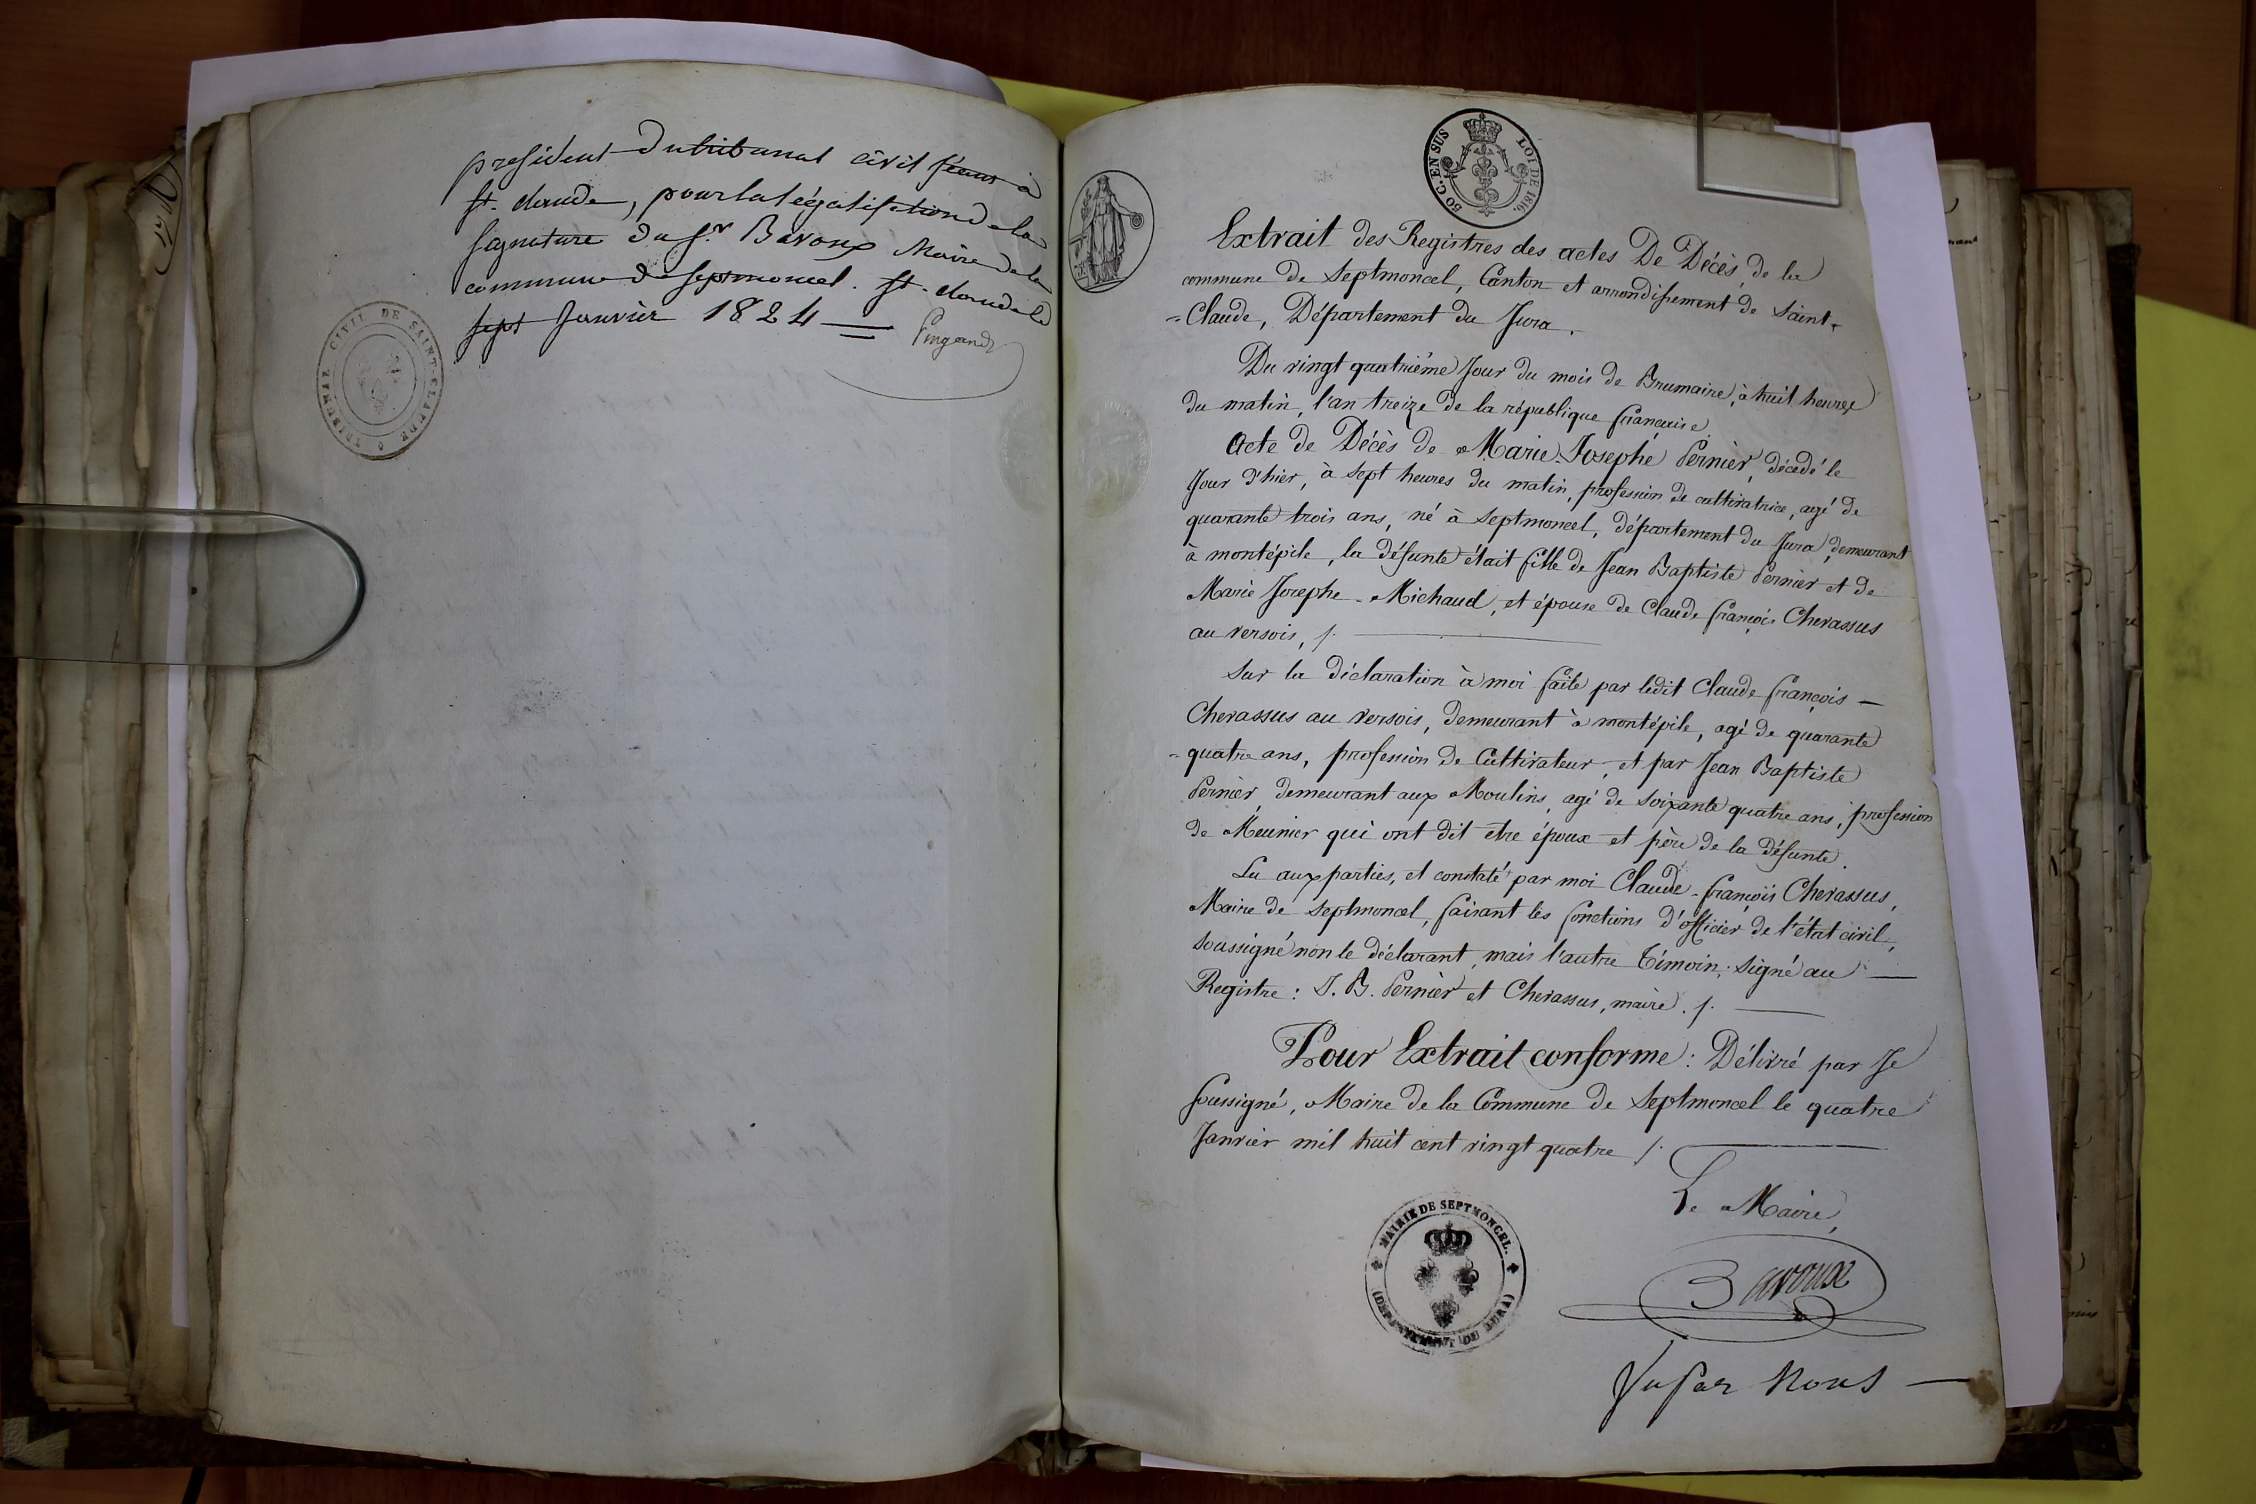 president du tribunal civil séant à
st. claude, pour la légalisation de la
signature du sr. Bavoux Maire de la
commune de septmoncel. st. claude le
sept Janvier 1824
TRIBUNAL CIVIL DE SAINT-CLAUDE
50 C. EN SUS LOI DE 1816.
Extrait des Registres des actes De Décès, de la
commune de Septmoncel, Canton et arrondissement de Saint-
=Claude, Département du Jura.
Du vingt quatrième Jour du mois de Brumaire, à huit heures
du matin, l'an treize de la république française.
Acte de Décès de Marie-Josephe Pernier, décédé le
Jour d'hier, à sept heures du matin, profession de cultivatrice, agé de
quarante trois ans, né à Septmoncel, département du Jura, demeurant
à montépile, la défunte était fille de Jean Baptiste Pernier et de
Marie Josephe Michaud, et épouse de Claude françois Chevassus
au versois, /.
Sur la déclaration à moi faite par ledit Claude françois
Chevassus au versois, demeurant à montépile, agé de quarante
=quatre ans, profession de Cultivateur, et par Jean Baptiste
Pernier, demeurant aux Moulins, agé de soixante quatre ans, profession
de Meunier qui ont dit etre époux et père de la défunte.
Lu aux parties, et constaté par moi Claude-françois Chevassus,
Maire de Septmoncel, faisant les fonctions d'officier de l'état civil,
soussigné non le déclarant, mais l'autre témoin; signé au
Registre : J. B. Pernier et Chevassus, maire. /.
Pour Extrait conforme : Délivré par Je
soussigné, Maire de la Commune de Septmoncel le quatre
Janvier mil huit cent vingt quatre /.
Le Maire,
MAIRIE DE SEPTMONCEL.
(DEPARTEMENT DU JURA)
Bavoux
Vu par Nous